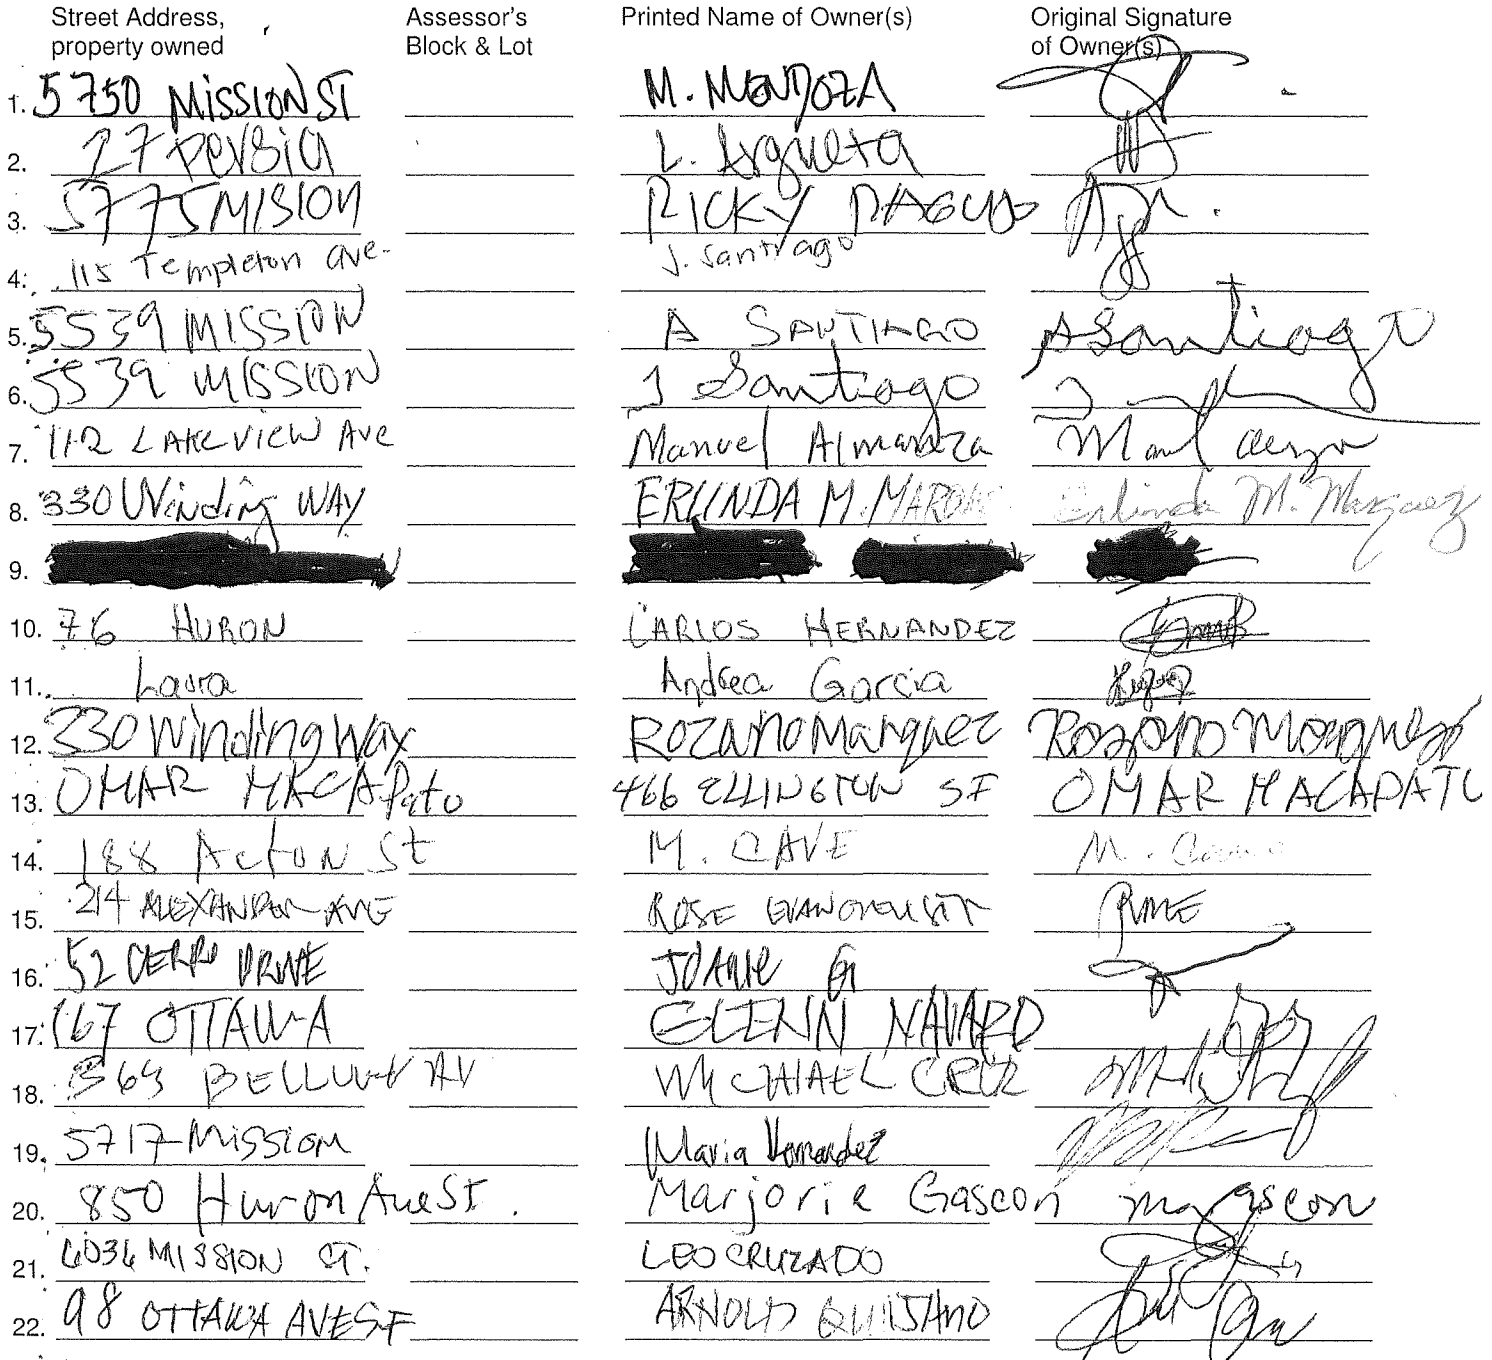 Street Address, Assessor's Printed Name of Owner(s) Original Signature
property owned Block & Lot of Owner(s)
1. 5750 MISSION ST M. MENDOZA
2. 27 Persia L. Argueta
3. 5775 MISION RICKY
4. 115 Templeton ave. J. Santiago
5. 5539 MISSION A SANTIAGO ASantiago
6. 5539 MISSION J Santiago
7. 112 LAKEVIEW Ave Manuel Almanza
8. 330 Winding WAY ERLINDA M. Erlinda M. Marquez
9.
10. 76 HURON CARLOS HERNANDEZ
11. Laura Andrea Garcia
12. 330 Winding Way Rozano Marquez Rozano Marquez
13. OMAR MACAPato 466 ELLINGTON SF OMAR MACAPATO
14. 188 Acton St M. CAVE M.
15. 214 ALEXANDER AVE ROSE
16. 52 CERRO DRIVE JOANIE G
17. 167 OTTAWA GLENN NAVARD
18. AV MICHAEL CRUZ
19. 5717 Mission Maria Hernandez
20. 850 Huron Ave St. Marjorie Gascon mgascon
21. 6036 MISSION ST. LEO CRUZADO
22. 98 OTTAWA AVE SF ARNOLD QUIJANO